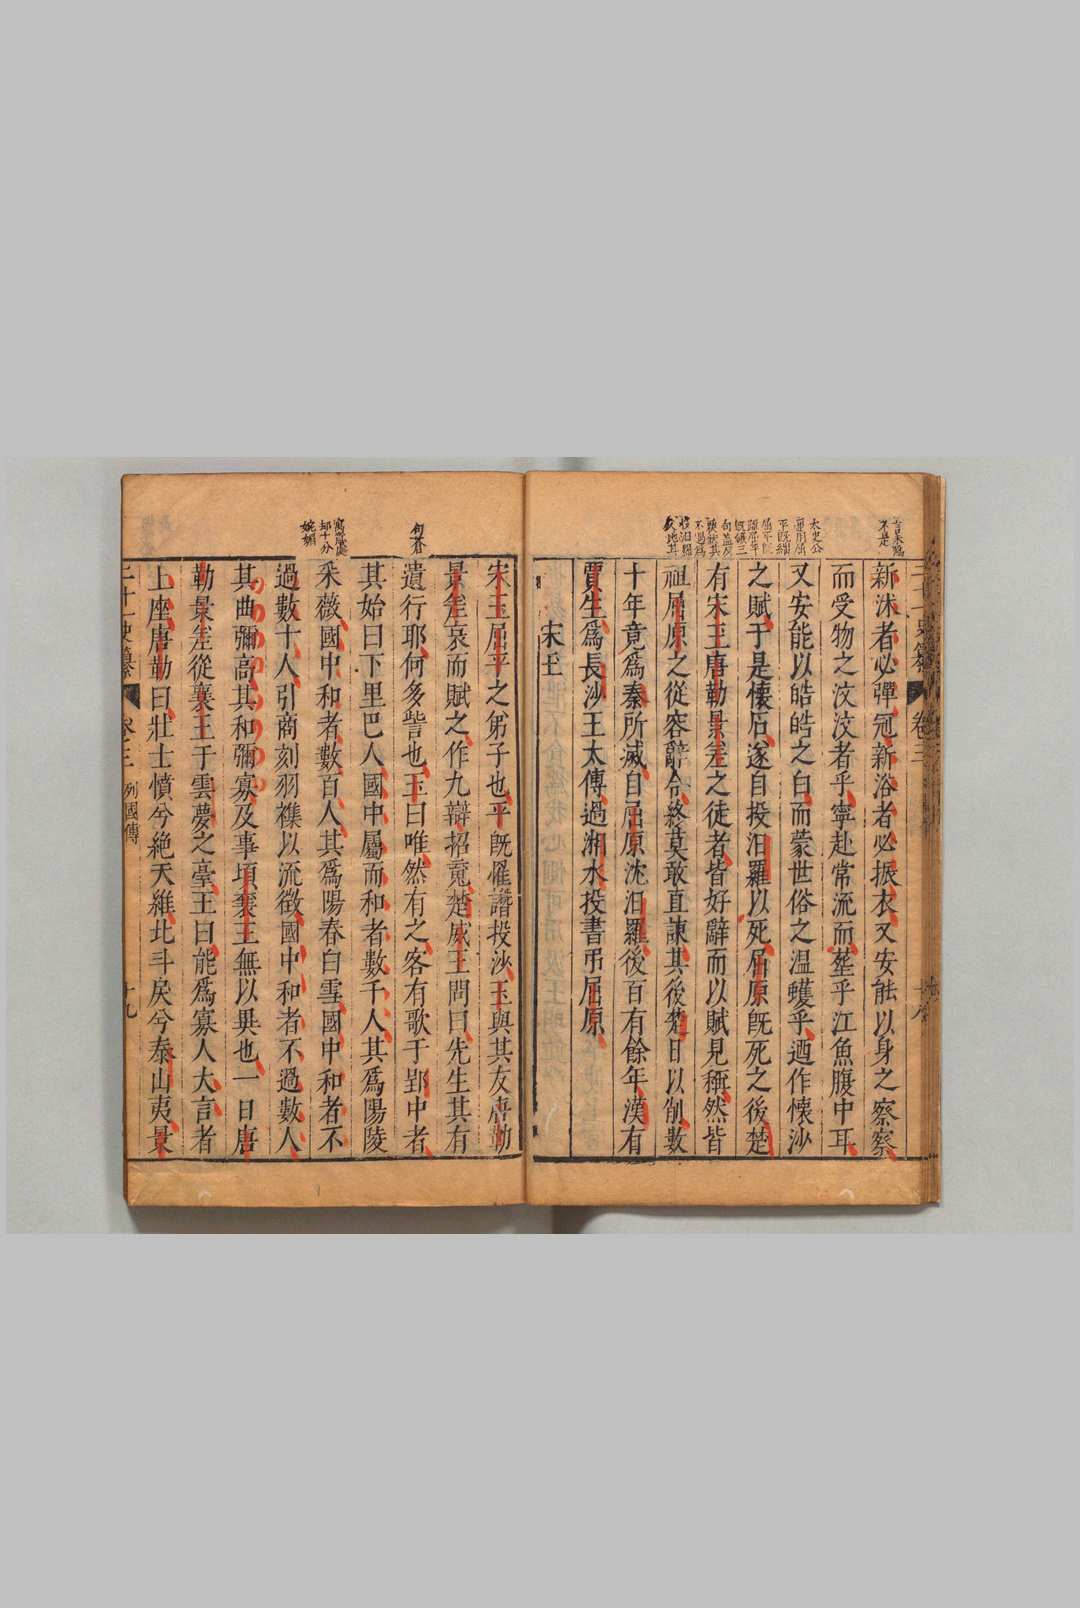 新沐者必彈冠新浴者必振衣又安能以身之察察
而受物之汶汶者乎寧赴常流而塟乎江魚腹中耳
又安能以皓皓之白而蒙世俗之溫蠖乎迺作懷沙
之賦于是懷石遂自投汨羅以死屈原旣死之後楚
有宋玉唐勒景差之徒者皆好辭而以賦見稱然皆
祖屈原之從容辭令終莫敢直諫其後楚日以削數
十年竟爲秦所滅自屈原沈汨羅後百有餘年漢有
賈生爲長沙王太傅過湘水投書弔屈原
宋玉
二十一史纂
卷三
十八
宋玉屈平之弟子也平旣罹譖投沙玉與其友唐勒
景差哀而賦之作九辯招䰟楚威王問曰先生其有
遺行耶何多訾也玉曰唯然有之客有歌于郢中者
其始曰下里巴人國中屬而和者數千人其爲陽陵
采薇國中和者數百人其爲陽春白雪國中和者不
過數十人引商刻羽襍以流徵國中和者不過數人
其曲彌高其和彌寡及事頃襄王無以異也一日唐
勒景差從襄王于雲夢之臺王曰能爲寡人大言者
上座唐勒曰壯士憤兮絶天維北斗戾兮泰山夷景
句荅
婉媚
二十一史纂
卷三
列國傳
十九